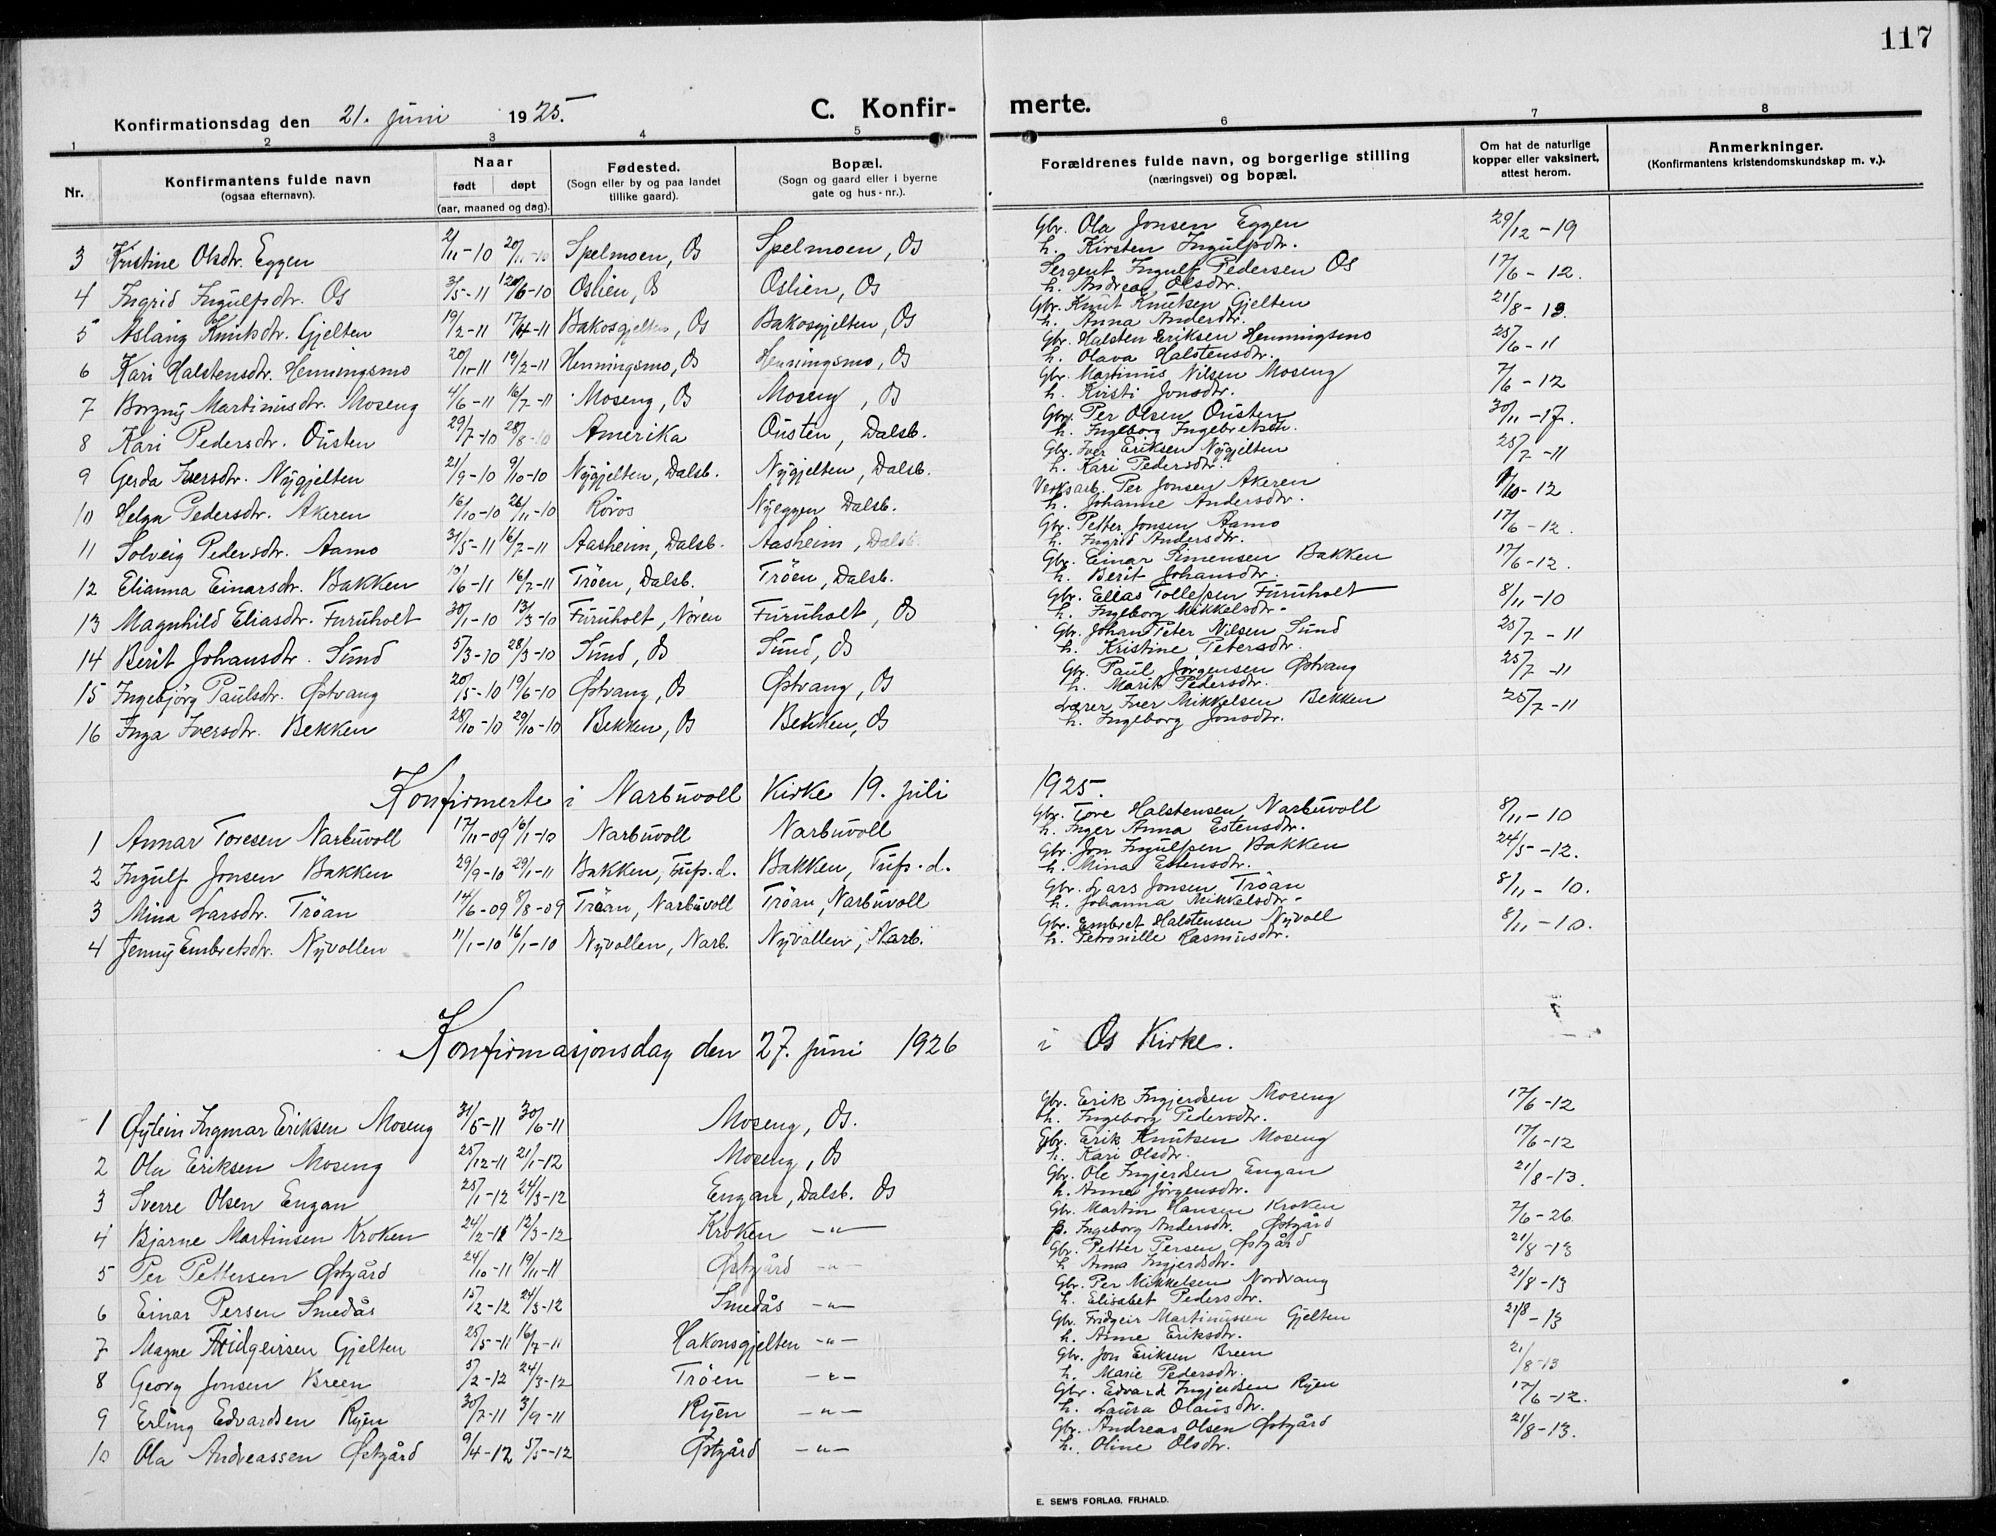 117
Konfirmationsdag den 21. Juni 1925. C. Konfir- merte.
1 2 3 4 5 6 7 8
Nr. Konfirmantens fulde navn (ogsaa efternavn). Naar født døpt (aar, maaned og dag). Fødested. (Sogn eller by og paa landet tillike gaard). Bopæl. (Sogn og gaard eller i byerne gate og hus-nr.). Forældrenes fulde navn, og borgerlige stilling (næringsvei) og bopæl. Om hat de naturlige kopper eller vaksinert, attest herom. Anmerkninger. (Konfirmantens kristendomskundskap m. v.).
3 Kristine Olsdtr. Eggen 2/11-10 20/11-10 Spelmoen, Os Spelmoen, Os Gbr. Ola Jonsen Eggen h. Kirsten Ingulfsdtr. 29/12-19
4 Ingrid Ingulfsdtr. Os 3/5-11 Oslien, Os Oslien, Os Sergent Ingulf Pedersen Os h. Andrea Olsdtr. 17/6-12.
5 Aslaug Knutsdtr. Gjelten 19/2-11 17/4-11 Bakosgjelten, Os Bakosgjelten, Os Gbr. Knut Knutsen Gjelten h. Anna Andersdtr. 21/8-13.
6 Kari Halstensdtr. Henningsmo 20/1-11 19/2-11 Henningsmo, Os Henningsmo, Os Gbr. Halsten Eriksen Henningsmo h. Olava Halstensdtr. 25/6-11
7 Borgny Martinusdtr. Moseng 4/6-11 16/7-11 Moseng, Os Moseng, Os Gbr. Martinus Nilsen Moseng h. Kirsti Jonsdtr. 7/6-12
8 Kari Pedersdtr. Ousten 29/7-10 28/8-10 Amerika Ousten, Dalsb. Gbr. Per Olsen Ousten h. Ingeborg Ingebretsdtr. 30/11-17.
9 Gerda Iversdtr. Nygjelten 21/9-10 9/10-10 Nygjelten, Dalsb. Nygjelten, Dalsb. Gbr. Iver Eriksen Nygjelten h. Kari Pedersdtr. 25/7-11
10 Helga Pedersdtr. Akeren 16/10-10 26/11-10 Röros Nyeggen Dalsb. Verksarb. Per Jonsen Akeren h. Johanne Andersdtr. /10-12
11 Solveig Pedersdtr. Aamo 31/5-11 16/7-11 Aasheim, Dalsb. Aasheim, Dalsb. Gbr. Petter Jonsen Aamo h. Ingrid Andersdtr. 17/6-12.
12 Elianna Einarsdtr. Bakken /6-11 16/7-11 Tröen, Dalsb. Tröen, Dalsb. Gbr. Einar Simensen Bakken h. Berit Johansdtr. 17/6-12.
13 Magnhild Eliasdtr. Furuholt 30/1-10 13/3-10 Furuholt, Nören Furuholt, Os Gbr. Elias Tollefsen Furuholt h. Ingeborg Mikkelsdtr. 8/11-10
14 Berit Johansdtr. Sund 5/3-10 28/3-10 Sund, Os Sund, Os Gbr. Johan Peter Nilsen Sund h. Kristine Petersdtr. 25/7-11
15 Ingebjörg Paulsdtr. Østvang 20/5-10 19/6-10 Østvang, Os Østvang, Os Gbr. Paul Jørgensen Østvang h. Marit Pedersdtr. 25/7-11
16 Inga Iversdtr. Bekken 28/10-10 29/10-10 Bekken, Os Bekken, Os Lærer Iver Mikkelsen Bekken h. Ingeborg Jonsdtr. 25/7-11
Konfirmerte i Narbuvoll Kirke 19. juli 1925.
1 Annar Toresen Narbuvoll 17/11-09 16/1-10 Narbuvoll Narbuvoll Gbr. Tore Halstensen Narbuvoll h. Inger Anna Estensdtr. 8/11-10
2 Ingulf Jonsen Bakken 29/9-10 29/1-11 Bakken, Tufs.d. Bakken, Tufs.d. Gbr. Jon Ingulfsen Bakken h. Mina Estensdtr. 24/5-12.
3 Mina Larsdtr. Tröan 14/6-09 8/8-09 Tröan, Narbuvoll Tröan, Narbuvoll Gbr. Lars Jonsen Tröan h. Johanna Mikkelsdtr. 8/11-10.
4 Jenny Embretsdtr. Nyvollen 11/1-10 16/1-10 Nyvollen, Narb. Nyvollen, Narb. Gbr. Embret Halstensen Nyvoll h. Petronille Rasmusdtr. 8/11-10.
Konfirmasjonsdag den 27. juni 1926 i Os Kirke.
1 Øystein Ingmar Eriksen Moseng 31/5-11 30/6-11 Moseng, Os. Gbr. Erik Ingjerdsen Moseng h. Ingeborg Pedersdtr. 17/6-12
2 Ola Eriksen Moseng 25/12-11 21/1-12 Moseng, Os Gbr. Erik Knutsen Moseng h. Kari Olsdtr. 17/6-12
3 Sverre Olsen Engan 25/1-12 24/3-12 Engan, Dalsb. Os Gbr. Ole Ingjerdsen Engan h. Anne Jörgensdtr. 21/8-13.
4 Bjarne Martinsen Kroken 24/2-12 12/3-12 Kroken -"- Gbr. Martin Hansen Kroken Ingeborg Andersdtr. Østgård 7/6-26
5 Per Pettersen Østgård 24/10-11 19/11-11 Østgård -"- Gbr. Petter Persen Østgård h. Anna Ingjerdsdtr. 21/8-13
6 Einar Persen Smedås 15/2-12 24/3-12 Smedås -"- Gbr. Per Mikkelsen Nordvang h. Elisabet Pedersdtr. 21/8-13
7 Magne Fridgeirsen Gjelten 25/5-11 16/7-11 Hakonsgjelten -"- Gbr. Fridgeir Martinussen Gjelten h. Anne Eriksdtr. 21/8-13
8 Georg Jonsen Breen 5/2-12 24/3-12 Tröen -"- Gbr. Jon Eriksen Breen h. Marie Pedersdtr. 21/8-13
9 Erling Edvardsen Ryen 30/7-11 3/9-11 Ryen -"- Gbr. Edvard Ingjerdsen Ryen h. Laura Olausdtr. 17/6-12.
10 Ola Andreassen Østgård 9/4-12 5/5-12 Østgård -"- Gbr. Andreas Olsen Østgård h. Oline Olsdtr. 21/8-13.
E. SEM'S FORLAG, FR.HALD.